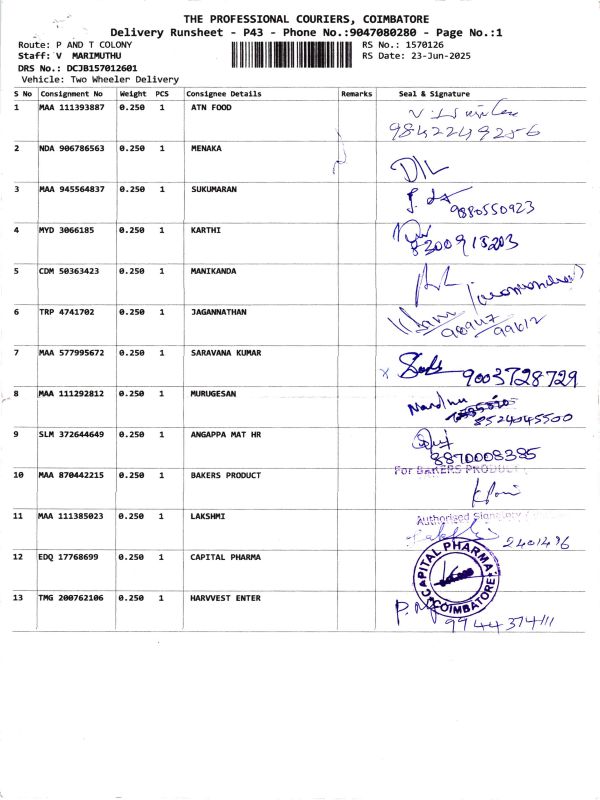 THE PROFESSIONAL COURIERS, COIMBATORE
Delivery Runsheet - P43 - Phone No.:9047080280 - Page No.:1
Route: P AND T COLONY RS No.: 1570126
Staff: V MARIMUTHU RS Date: 23-Jun-2025
DRS No.: DCJB157012601
Vehicle: Two Wheeler Delivery
S No Consignment No Weight PCS Consignee Details Remarks Seal & Signature
1 MAA 111393887 0.250 1 ATN FOOD
9842249256
2 NDA 906786563 0.250 1 MENAKA
3 MAA 945564837 0.250 1 SUKUMARAN
9880550923
4 MYD 3066185 0.250 1 KARTHI
8300915203
5 CDM 50363423 0.250 1 MANIKANDA
6 TRP 4741702 0.250 1 JAGANNATHAN
98947 99612
7 MAA 577995672 0.250 1 SARAVANA KUMAR
9003728729
8 MAA 111292812 0.250 1 MURUGESAN
8524045500
9 SLM 372644649 0.250 1 ANGAPPA MAT HR
8870008385
For BAKERS PRODUCT
10 MAA 870442215 0.250 1 BAKERS PRODUCT
Authorised Signatory
11 MAA 111385023 0.250 1 LAKSHMI
2401496
12 EDQ 17768699 0.250 1 CAPITAL PHARMA
CAPITAL PHARMA COIMBATORE
13 TMG 200762106 0.250 1 HARVVEST ENTER
9944374111